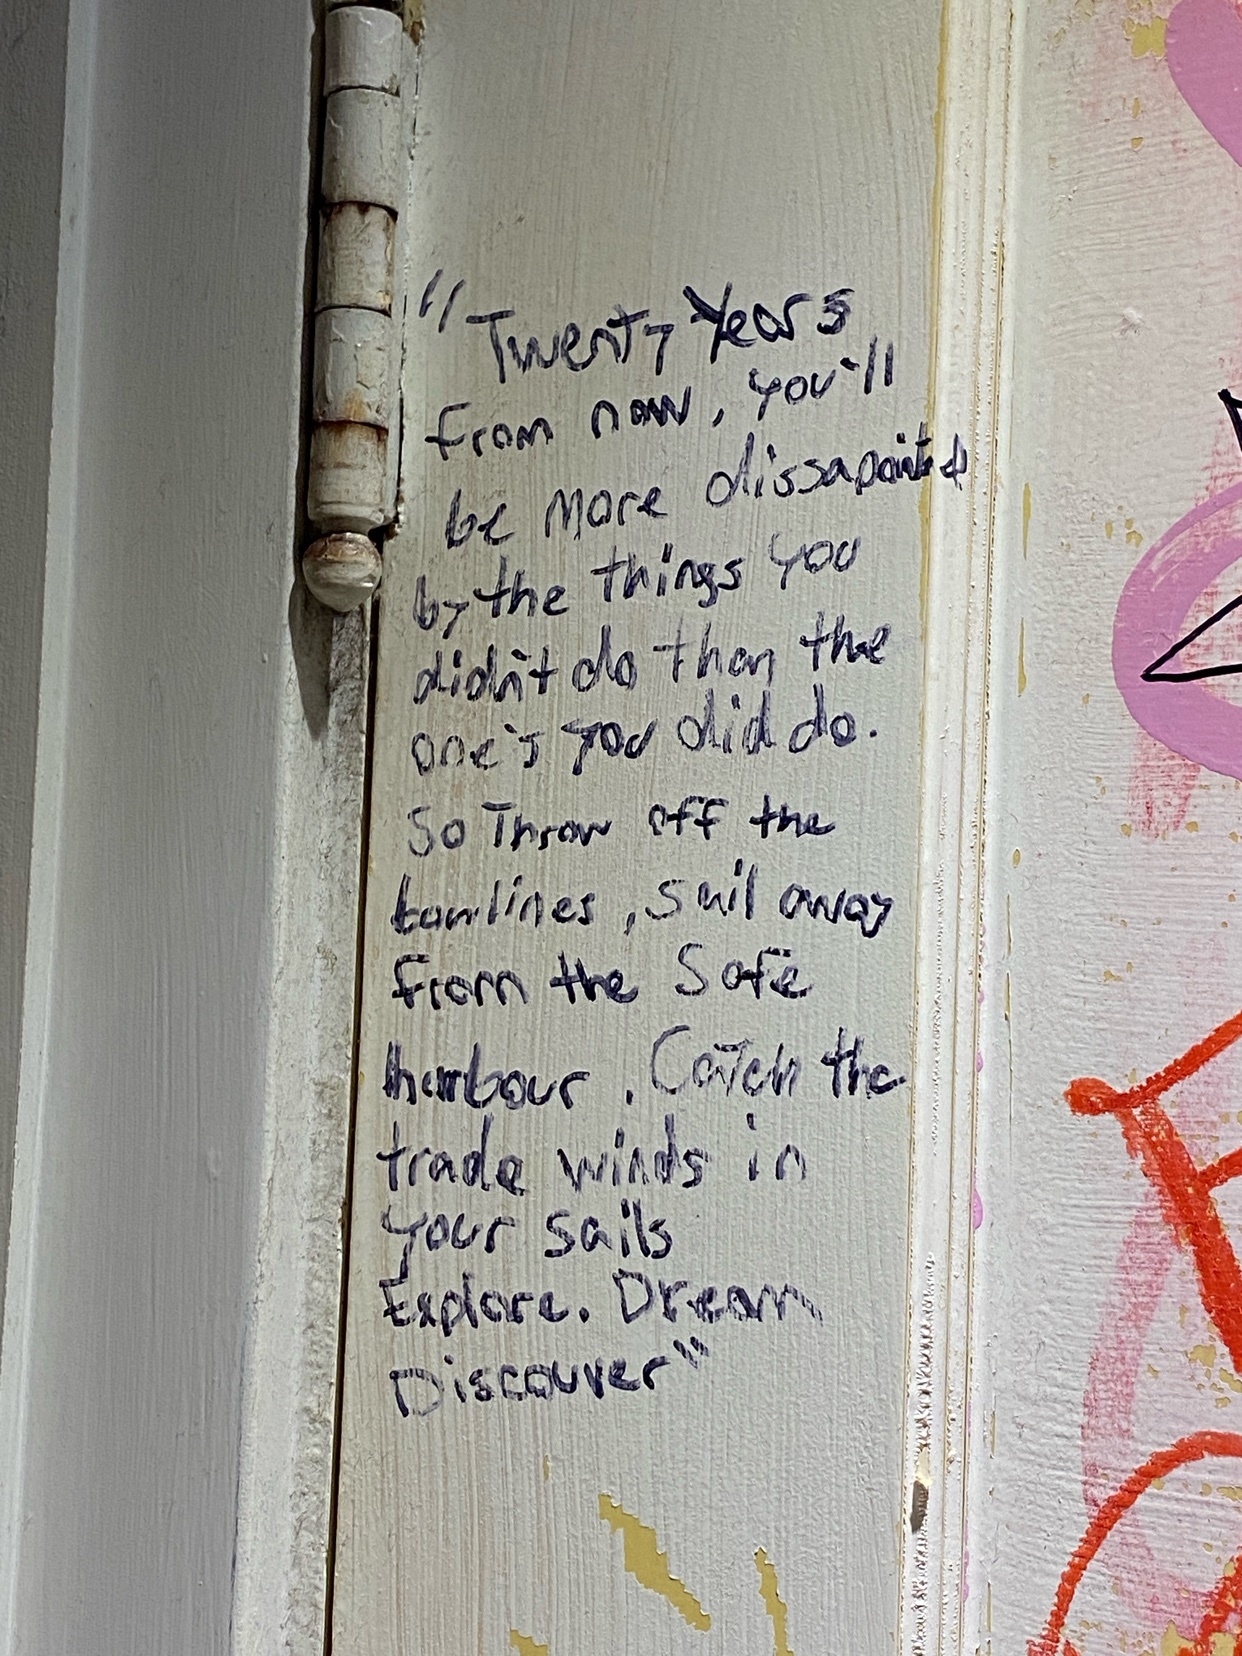 "Twenty Years
from now, you'll
be more dissapointed
by the things you
didn't do than the
one's you did do.
So Throw off the
bowlines, sail away
from the Safe
harbour. Catch the
trade winds in
your sails
Explore. Dream
Discouver"